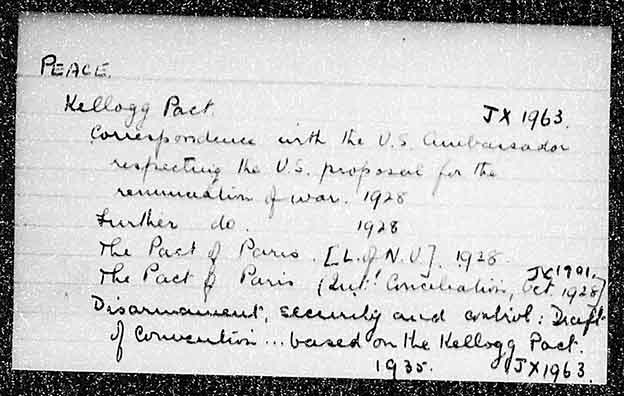 PEACE.
Kellogg Pact. JX 1963.
Correspondence with the U.S. Ambassador
respecting the U.S. proposal for the
renunciation of war. 1928
Further do. 1928
The Pact of Paris. [L. of N.U]. 1928.
JX 1901.
The Pact of Paris (Int! Conciliation, Oct 1928)
Disarmament, security and control: Draft
of Convention ... based on the Kellogg Pact.
1935. JX1963.